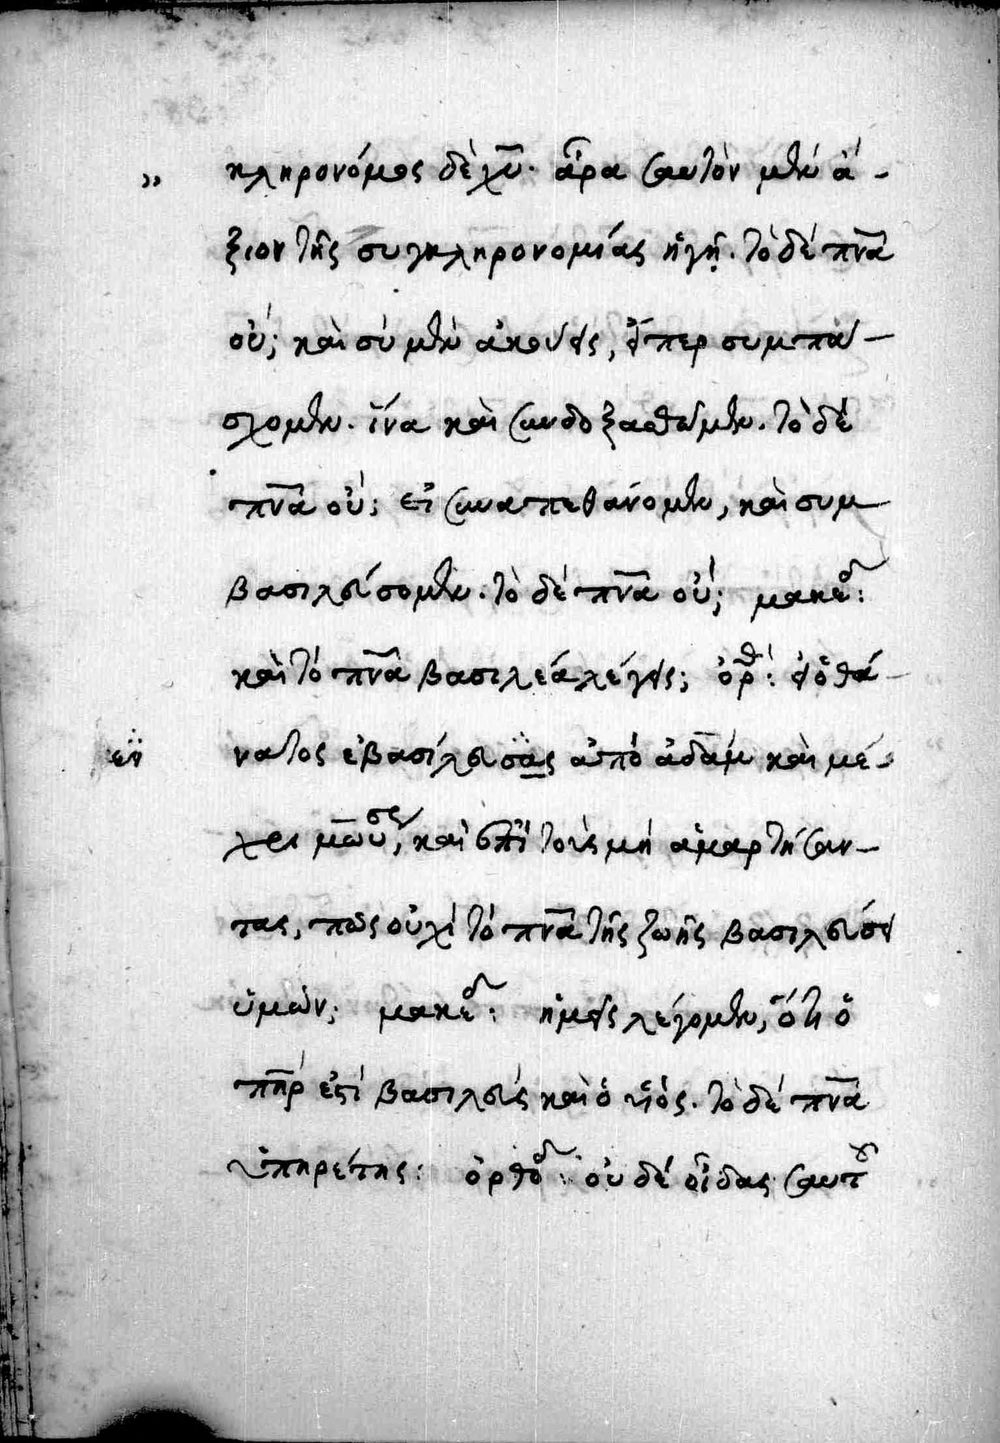 ” κληρονόμος δὲ χ̅υ̅· ἆρα σαυτὸν μὲν ἄ-
ξιον τῆς συγκληρονομίας ἡγῇ. τὸ δὲ π̅ν̅α̅
οὔ; καὶ σὺ μὲν ἀκούεις, εἴπερ συμπά-
σχομεν. ἵνα καὶ συνδοξασθῶμεν. τὸ δὲ
π̅ν̅α̅ οὔ; εἰ συναπεθάνομεν, καὶ συμ
βασιλεύσομεν. τὸ δὲ π̅ν̅α̅ οὔ; μακεδ:
καὶ τὸ π̅ν̅α̅ βασιλέα λέγεις; ὀρθ: εἰ ὁ θά-
νατος ἐβασίλευσας ἀπὸ ἀδὰμ καὶ μέ-
χρι μωυσέ, καὶ ἐπὶ τοὺς μὴ ἁμαρτήσαν-
τας, πῶς οὐχὶ τὸ π̅ν̅α̅ τῆς ζωῆς βασιλεύσει
ὑμῶν; μακεδ: ἡμεῖς λέγομεν, ὅτι ὁ
π̅η̅ρ̅ ἐστὶ βασιλεὺς καὶ ὁ υἱός. τὸ δὲ π̅ν̅α̅
ὑπηρέτης: ὀρθοδ: οὐδὲ οἶδας σαυτοῦ